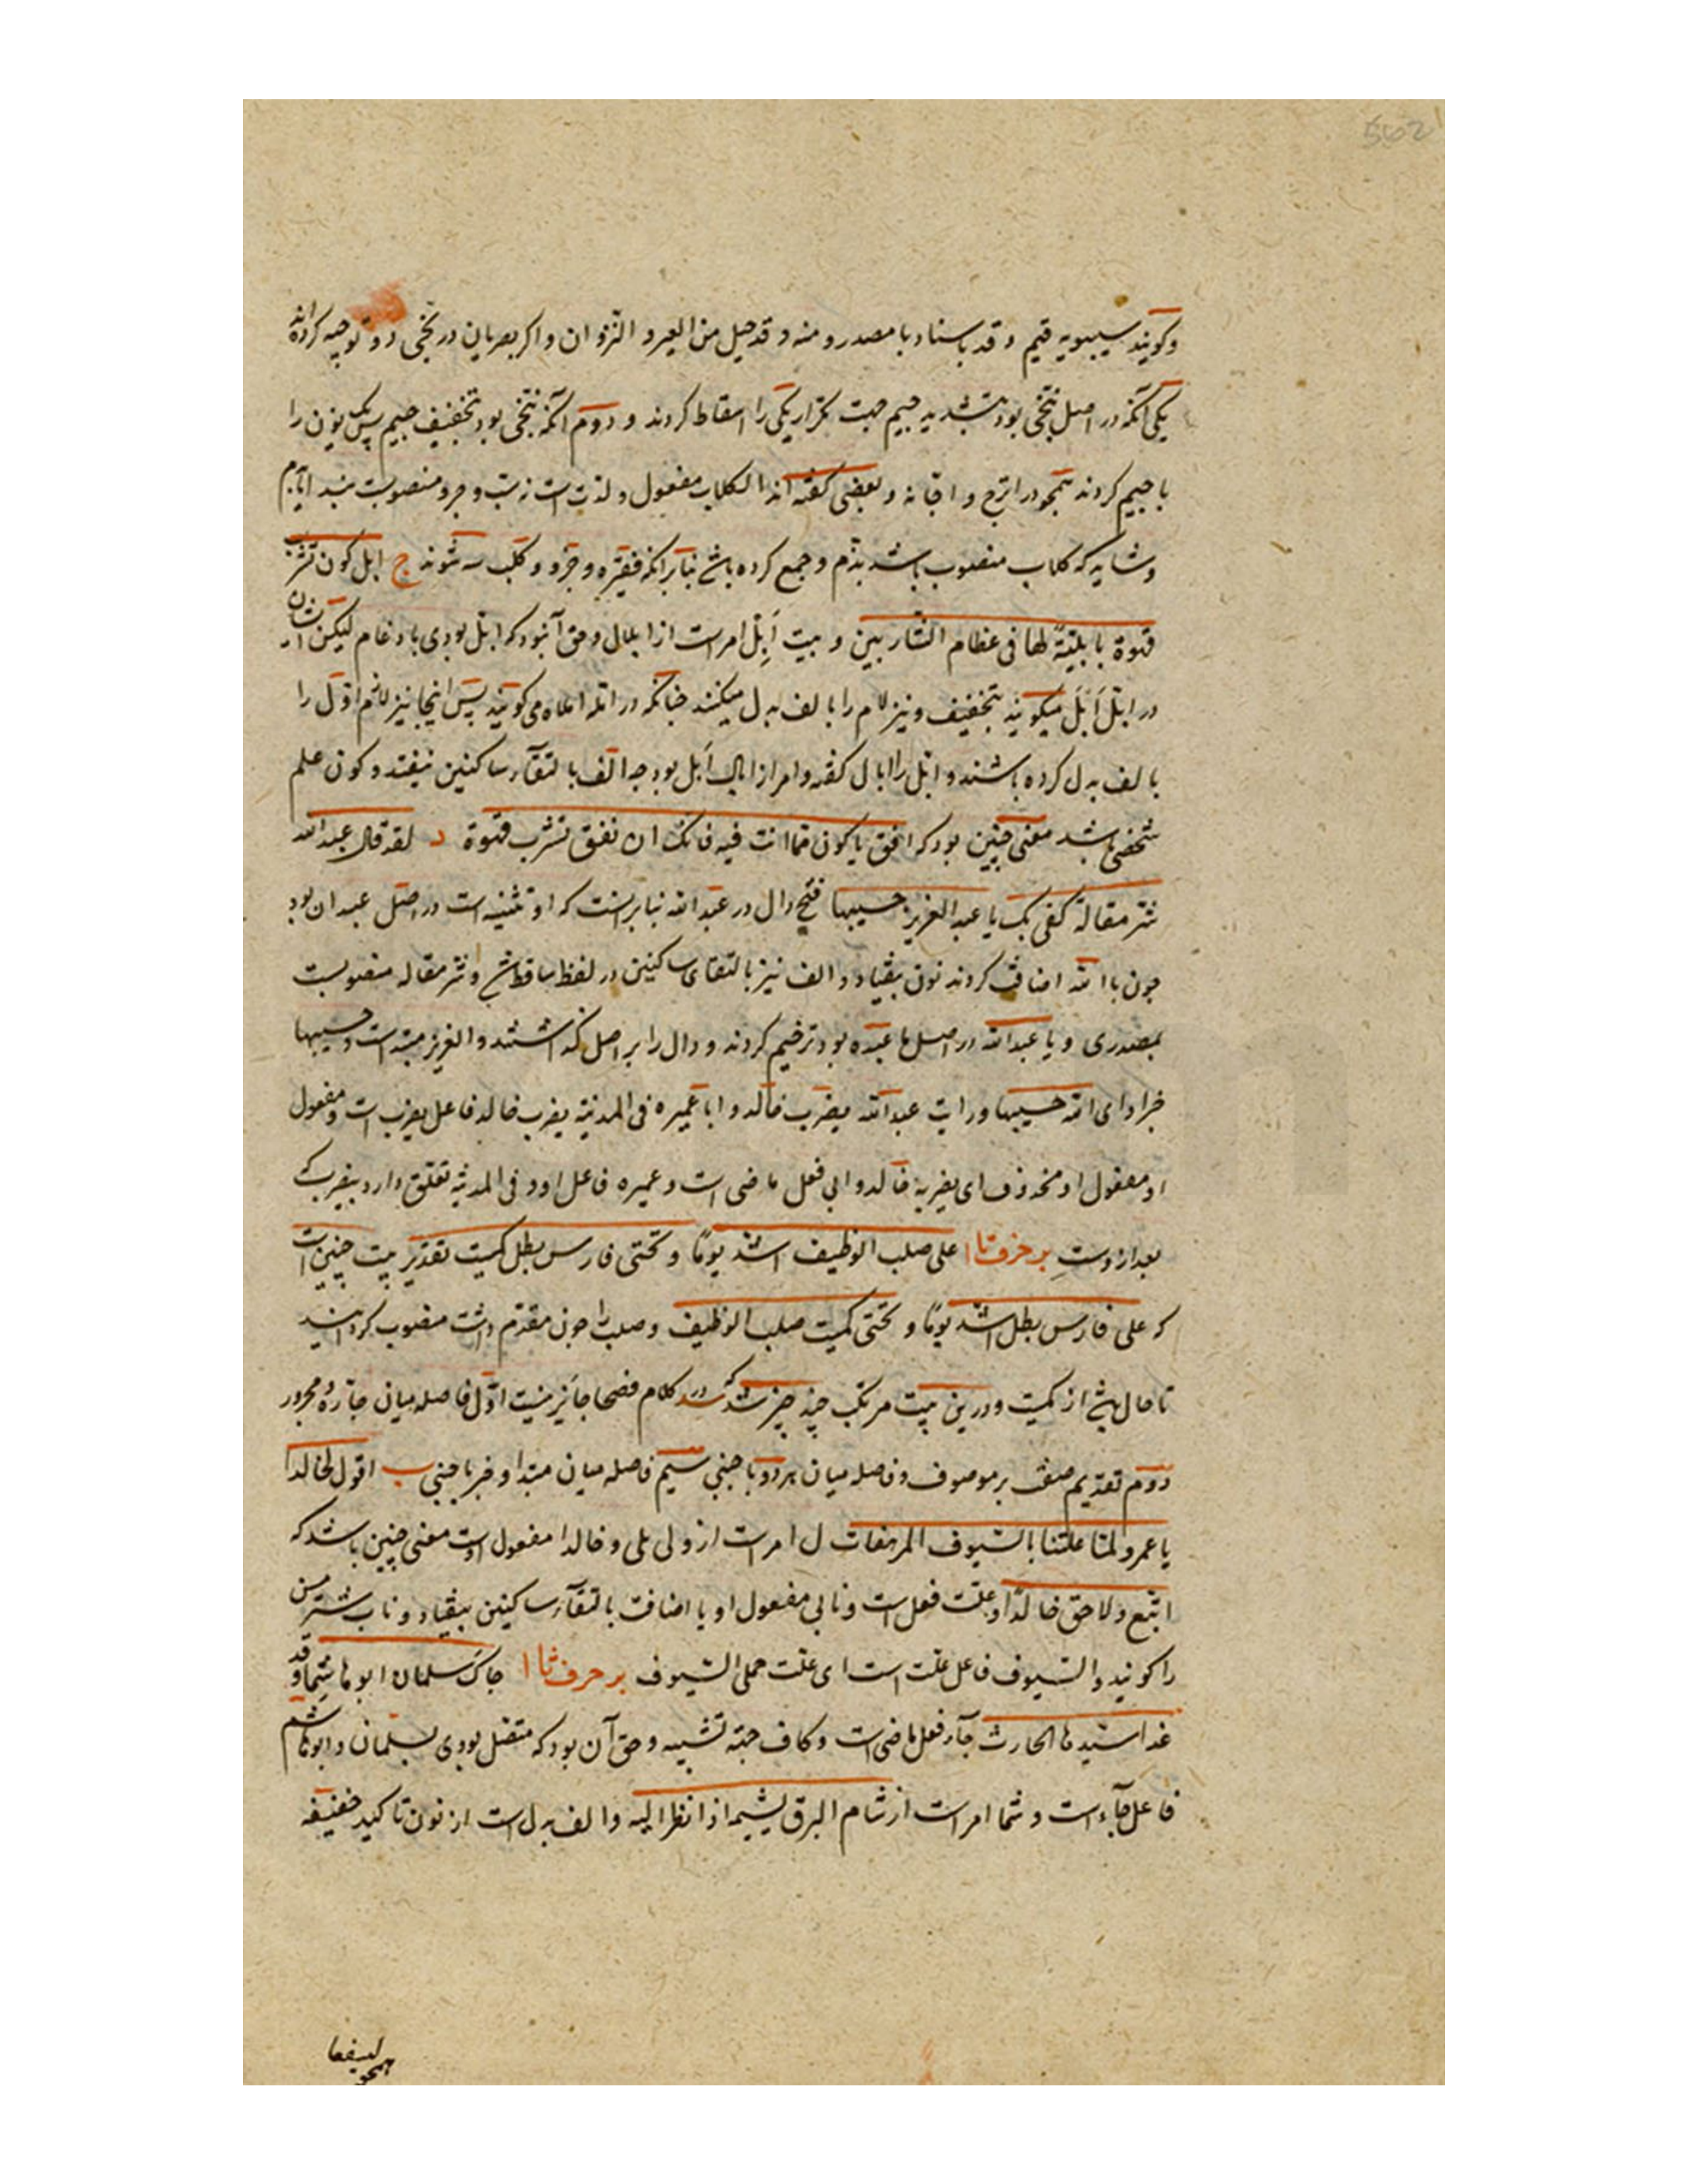 562
وکویند سیبویه قیم و قد باسناد با مصدر و منه و قد حیل من العیر و النزوان و اکر بصریان در نجی دو توجیه کرده اند
یکی آنکه در اصل ننجی بود بتشدید جیم جهت تکرار یکی را اسقاط کردند و دوم آنکه ننجی بود بتخفیف جیم پس یک نون را
با جیم کردند همجو در اترج و اجانه و بعضی کفته اند الکلاب مفعول ولدت است و جرو منصوبست
و شاید که کلاب منصوب باشد بذم و جمع کرده باشد بنابر آنکه فقیره و جرو و کلب سه شوند ج ابل کون تشرب
قهوة بابلیة لها فی عظام الشاربین و بیت اَبِلْ امرست از ابلال و حق آن بود که ابلل بودی با دغام لیکن
در ابلل اَبَلَ میکویند بتخفیف و نیز لام را بالف بدل میکنند جنانکه در املا املاه می کویند پس اینجا نیز لام اول را
بالف بدل کرده باشند و ابلل را ابال کفته و امر از ابال اَبل بود جه الف بالتقآء ساکنین بیفتد و کون علم
شخصی باشد معنی چنین بود که افق یا کون مما انت فیه فانک ان تفق تشرب قهوة د لقد قال عبد الله
شر مقالة کفی بک یا عبد العزیز حسیبها فتح دال در عبد الله بنابر آنست که او تثنیه است در اصل عبدان بود
جون با الله اضافت کردند نون بیفتاد و الف نیز بالتقای ساکنین در لفظ ساقط شد و شر مقاله منصوبست
بمصدری و یا عبد الله در اصل یا عبده بود ترخیم کردند و دال را بر اصل کذاشتند و العزیز مبتداست و حسیبها
خبر او ای الله حسیبها و رایت عبد الله یضرب خالد و ابا عمیره فی المدینة یضرب خالد فاعل یضرب است و مفعول
او مفعول او محذوف ای یضربه خالد و ابی فعل ماضی است و عمیره فاعل او و فی المدینة تعلق دارد بیضرب که
بعد ازوست بر حرف تا ا علی صلب الوظیف اشد یومًا و تحتی فارس بطل کمیت تقدیر بیت چنین است
که علی فارس بطل اشد یومًا و تحتی کمیت صلب الوظیف و صلب را جون مقدم داشت منصوب کردانید
تا حال باشد از کمیت و درین بیت مرتکب چند چیز شد که در کلام فصحا جایز نیست اول فاصله میان جاره و مجرور
دوم تقدیم صفت بر موصوف و فاصله میان هر دو باجنبی سیم فاصله میان مبتدا و خبر باجنبی ب اقول لخالدا
یا عمرو لما علتنا بالسیوف المرهفات ل امرست از ولی یلی و خالدا مفعول اوست معنی چنین باشد که
اتبع و لاحق خالدًا و علت فعل است و نابی مفعول او یا اضافت بالتقآء ساکنین بیفتاد و ناب شتر مسن
را کویند و السیوف فاعل علت است ای علت جملی السیوف بر حرف ثا ا جاک سلمان ابو هاشما و قد
غدا سیدها الحارث جآء فعل ماضی است و کاف جهة تشبیه و حق آن بود که متصل بودی بسلمان و ابو هاشم
فاعل جآء است و شما امرست از شام البرق یشیمه اذا نظر الیه و الف بدل است از نون تاکید خفیفه
همجو لنسفعا